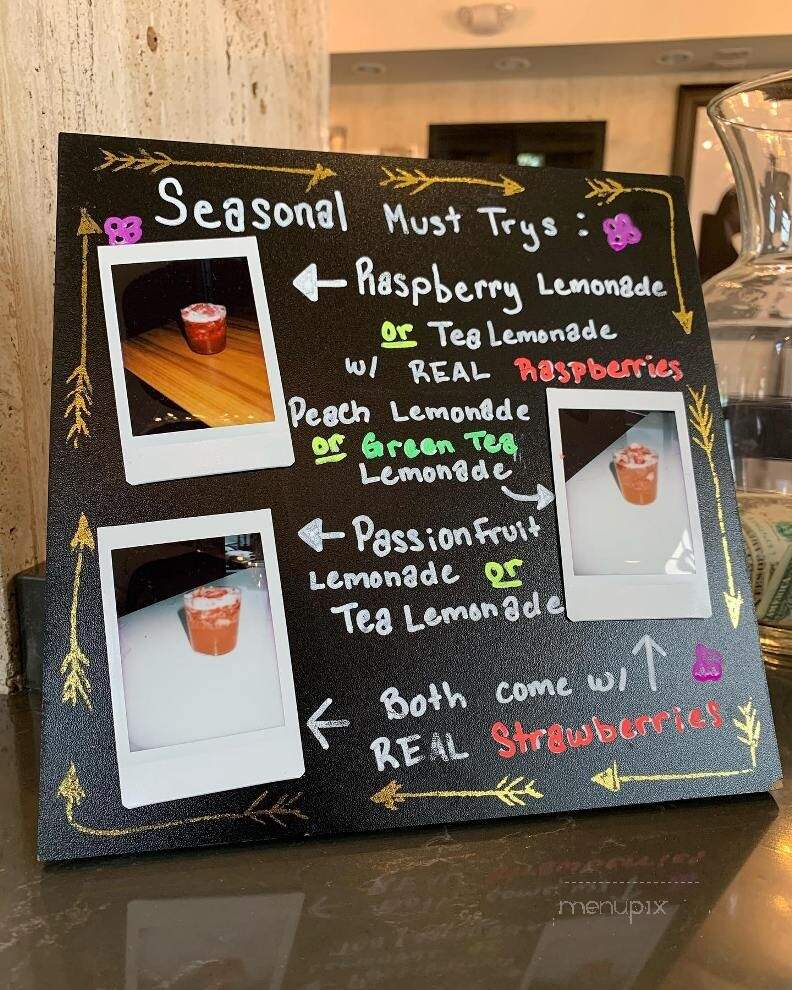 Seasonal Must Trys :
Raspberry Lemonade
or Tea Lemonade
w/ REAL Raspberries
Peach Lemonade
or Green Tea
Lemonade
Passionfruit
Lemonade or
Tea Lemonade
Both come w/
REAL Strawberries
menupix